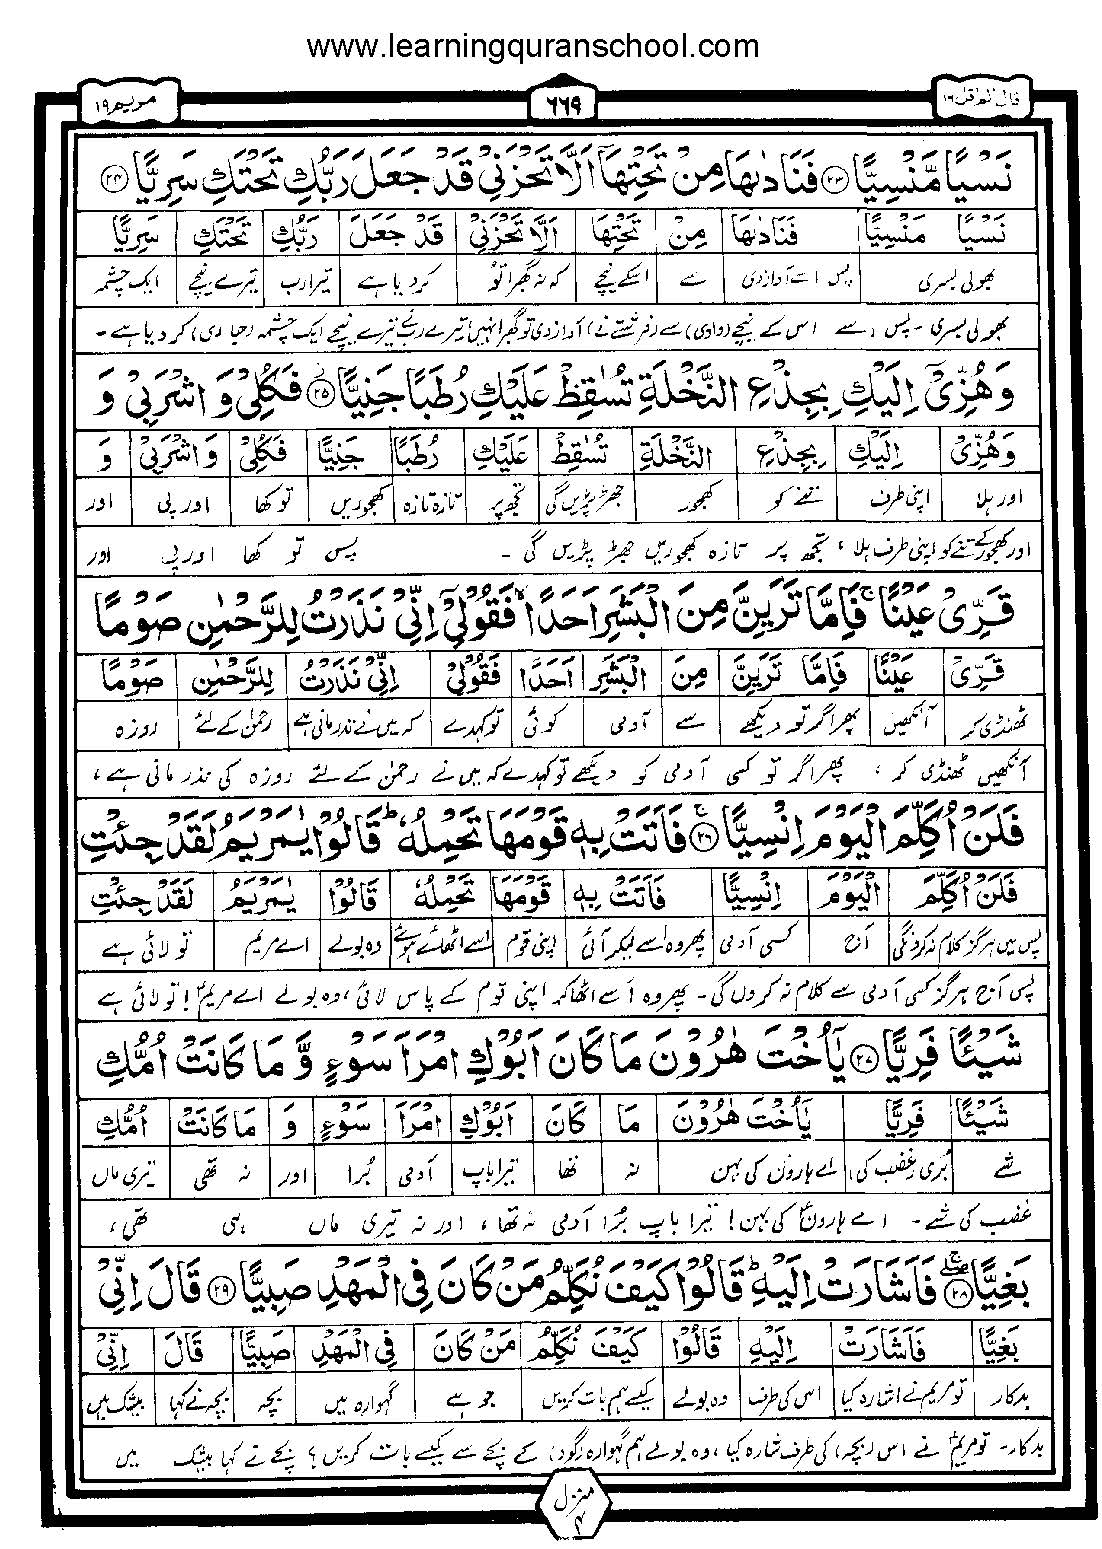 www.learningquranschool.com
قال الم اقل ۱۶
۶۶۹
مریم ۱۹
نَسْيًا مَّنْسِيًّا ﴿۲۳﴾ فَنَادٰىهَا مِنْ تَحْتِهَاۤ اَلَّا تَحْزَنِيْ قَدْ جَعَلَ رَبُّكِ تَحْتَكِ سَرِيًّا ﴿۲۴﴾
نَسْيًا مَنْسِيًّا فَنَادٰىهَا مِنْ تَحْتِهَا اَلَّا تَحْزَنِيْ قَدْ جَعَلَ رَبُّكِ تَحْتَكِ سَرِيًّا
بھولی بسری پس اسے آواز دی سے اسکے نیچے کہ نہ گھبرا تو کر دیا ہے تیرا رب تیرے نیچے ایک چشمہ
بھولی بسری - پس اسے اس کے نیچے (وادی) سے (فرشتے نے) آواز دی تو گھبرا نہیں تیرے رب نے تیرے نیچے ایک چشمہ (جاری) کر دیا ہے -
وَهُزِّيْۤ اِلَيْكِ بِجِذْعِ النَّخْلَةِ تُسٰقِطْ عَلَيْكِ رُطَبًا جَنِيًّا ﴿۲۵﴾ فَكُلِيْ وَ اشْرَبِيْ وَ
وَهُزِّيْ اِلَيْكِ بِجِذْعِ النَّخْلَةِ تُسٰقِطْ عَلَيْكِ رُطَبًا جَنِيًّا فَكُلِيْ وَ اشْرَبِيْ وَ
اور ہلا اپنی طرف تنے کو کھجور جھڑ پڑیں گی تجھ پر تازہ تازہ کھجوریں تو کھا اور پی اور
اور کھجور کے تنے کو اپنی طرف ہلا، تجھ پر تازہ کھجوریں جھڑ پڑیں گی - پس تو کھا اور پی اور
قَرِّيْ عَيْنًا ۚ فَاِمَّا تَرَيِنَّ مِنَ الْبَشَرِ اَحَدًا ۙ فَقُوْلِيْۤ اِنِّيْ نَذَرْتُ لِلرَّحْمٰنِ صَوْمًا
قَرِّيْ عَيْنًا فَاِمَّا تَرَيِنَّ مِنَ الْبَشَرِ اَحَدًا فَقُوْلِيْ اِنِّيْ نَذَرْتُ لِلرَّحْمٰنِ صَوْمًا
ٹھنڈی کر آنکھیں پھر اگر تو دیکھے سے آدمی کوئی تو کہدے کہ میں نے نذر مانی ہے رحمٰن کے لئے روزہ
آنکھیں ٹھنڈی کر، پھر اگر تو کسی آدمی کو دیکھے تو کہدے کہ میں نے رحمٰن کے لئے روزہ کی نذر مانی ہے،
فَلَنْ اُكَلِّمَ الْيَوْمَ اِنْسِيًّا ۚ﴿۲۶﴾ فَاَتَتْ بِهٖ قَوْمَهَا تَحْمِلُهٗ ؕ قَالُوْا يٰمَرْيَمُ لَقَدْ جِئْتِ
فَلَنْ اُكَلِّمَ الْيَوْمَ اِنْسِيًّا فَاَتَتْ بِهٖ قَوْمَهَا تَحْمِلُهٗ قَالُوْا يٰمَرْيَمُ لَقَدْ جِئْتِ
پس میں ہرگز کلام نہ کرونگی آج کسی آدمی پھر وہ اسے لیکر آئی اپنی قوم اسے اٹھائے ہوئے وہ بولے اے مریم تو لائی ہے
پس آج ہرگز کسی آدمی سے کلام نہ کروں گی - پھر وہ اسے اٹھا کر اپنی قوم کے پاس لائی، وہ بولے اے مریمؑ! تو لائی ہے
شَيْـًٔا فَرِيًّا ﴿۲۷﴾ يٰۤاُخْتَ هٰرُوْنَ مَا كَانَ اَبُوْكِ امْرَاَ سَوْءٍ وَّ مَا كَانَتْ اُمُّكِ
شَيْئًا فَرِيًّا يٰۤاُخْتَ هٰرُوْنَ مَا كَانَ اَبُوْكِ امْرَاَ سَوْءٍ وَ مَا كَانَتْ اُمُّكِ
شے بُری (غضب کی) اے ہارون کی بہن نہ تھا تیرا باپ آدمی بُرا اور نہ تھی تیری ماں
غضب کی شے - اے ہارونؑ کی بہن! تیرا باپ بُرا آدمی نہ تھا، اور نہ تیری ماں ہی تھی،
بَغِيًّا ۖۚ﴿۲۸﴾ فَاَشَارَتْ اِلَيْهِ ؕ قَالُوْا كَيْفَ نُكَلِّمُ مَنْ كَانَ فِي الْمَهْدِ صَبِيًّا ﴿۲۹﴾ قَالَ اِنِّيْ
بَغِيًّا فَاَشَارَتْ اِلَيْهِ قَالُوْا كَيْفَ نُكَلِّمُ مَنْ كَانَ فِي الْمَهْدِ صَبِيًّا قَالَ اِنِّيْ
بدکار تو مریم نے اشارہ کیا اس کی طرف وہ بولے کیسے ہم بات کریں جو ہے گہوارہ میں بچہ بچہ نے کہا بیشک میں
بدکار - تو مریمؑ نے اس (بچہ) کی طرف اشارہ کیا، وہ بولے ہم گہوارہ (گود) کے بچے سے کیسے بات کریں؟ بچے نے کہا بیشک میں
منزل ۴